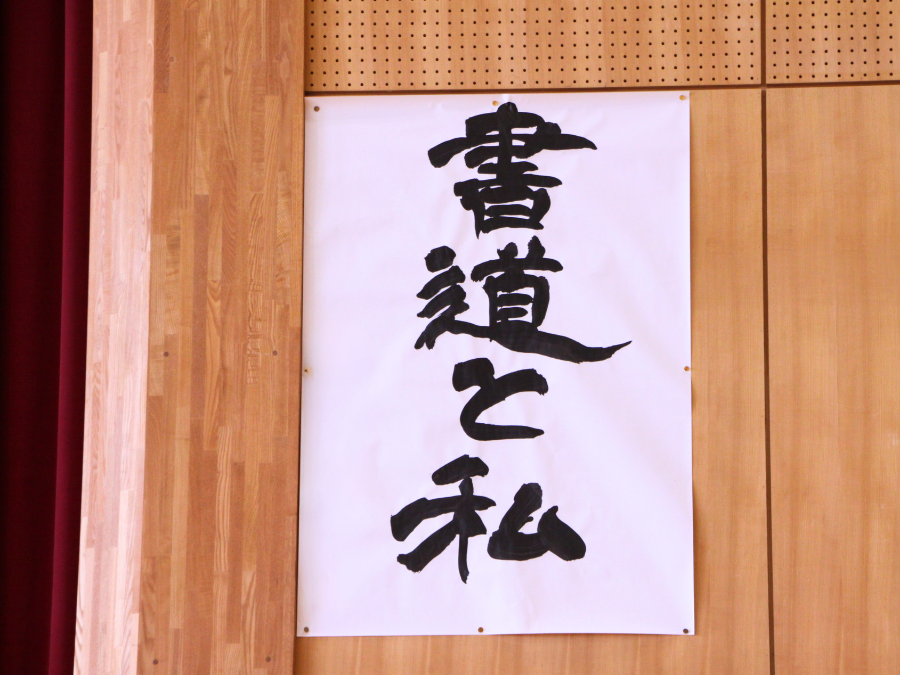 書道と私